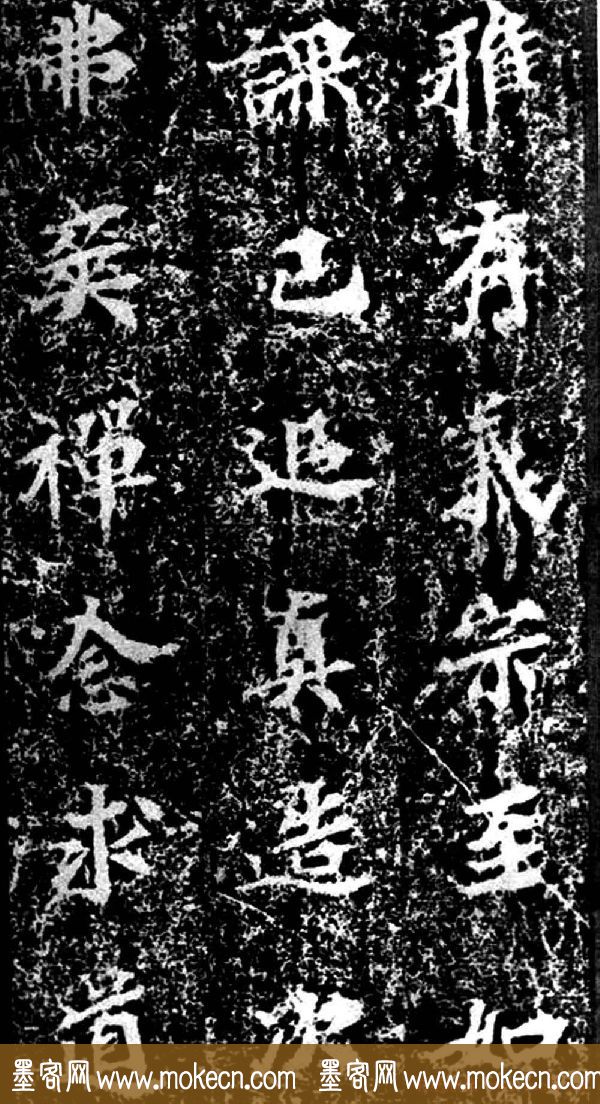 雅有義宗至如
課己追真造次
弗爽禪念求道
墨客网 www.mokecn.com 墨客网 www.mokecn.com